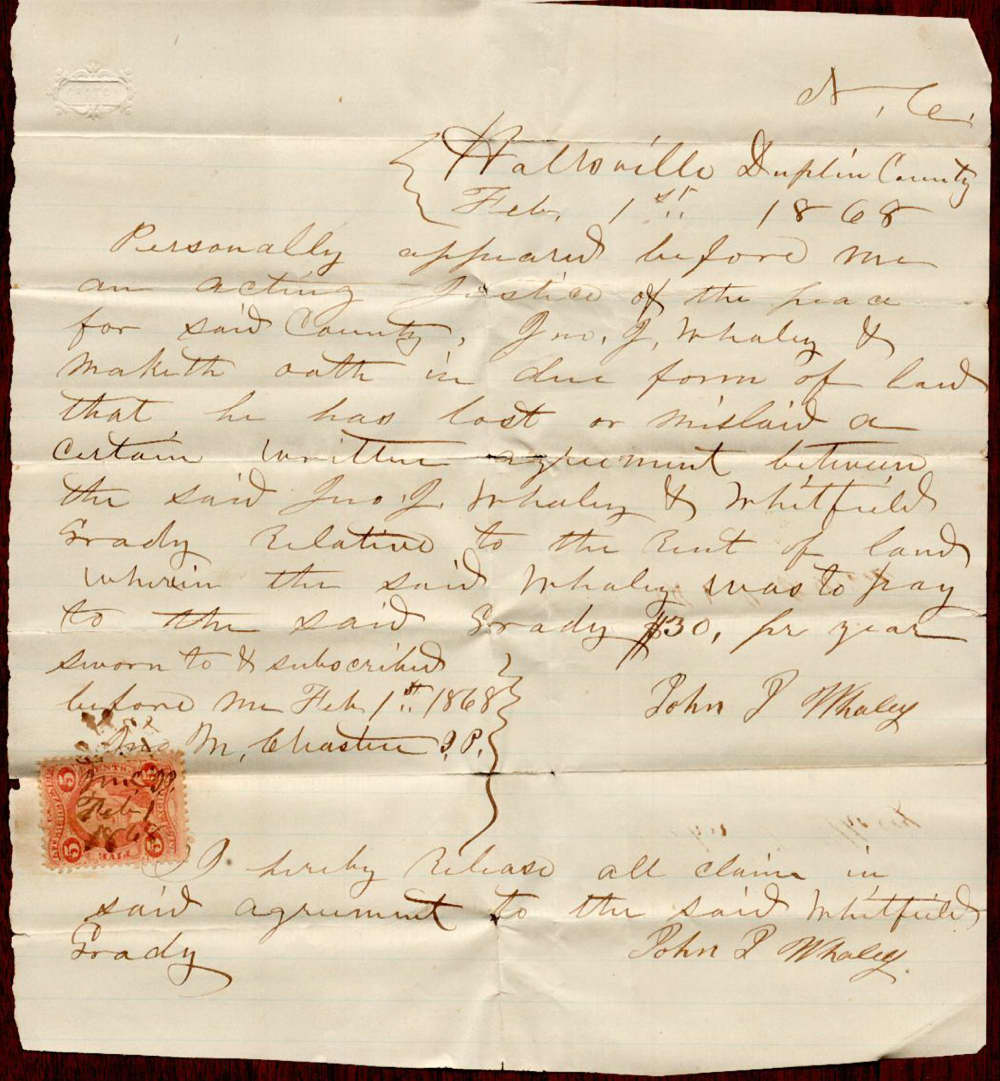 N, C.
Hallsville Duplin County
Feb, 1st 1868
Personally appeared before me
an acting Justice of the peace
for said County, Jno, J, Whaley &
Maketh oath in due form of law
that he has lost or mislaid a
certain written agreement between
the said Jno. J. Whaley & Whitfield
Grady Relative to the Rent of land
wherein the said Whaley was to pay
to the said Grady $30, pr year
sworn to & subscribed
before me Feb 1st 1868
John J Whaley
Jno M, Chasten J.P.
5 5
Feb 1
1868
5 5
I hereby Release all claim in
said agreement to the said Whitfield
Grady
John J Whaley.